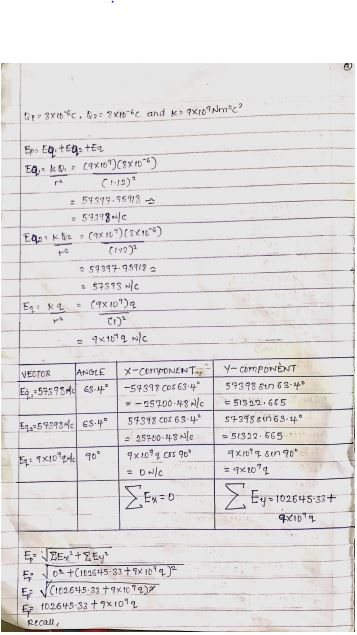 Q₁ = 8x10⁻⁶C, Q₂ = 8x10⁻⁶C and K = 9x10⁹Nm²C²
Ep = EQ₁ + EQ₂ + Eq
EQ₁ = K Q₁ / r² = (9x10⁹)(8x10⁻⁶) / (1.12)²
= 57397.95918 ≏
= 57398 N/C
EQ₂ = K Q₂ / r² = (9x10⁹)(8x10⁻⁶) / (1.12)²
= 57397.95918 ≏
= 57398 N/C
Eq = Kq / r² = (9x10⁹)q / (1)²
= 9x10⁹q N/C
VECTOR ANGLE X-COMPONENT Y-COMPONENT
EQ₁=57398N/C 63.4° -57398 cos 63.4° 57398 sin 63.4°
= -25700.48 N/C = 51322.665
EQ₂=57398N/C 63.4° 57398 cos 63.4° 57398 sin 63.4°
= 25700.48 N/C = 51322.665
Eq = 9x10⁹qN/C 90° 9x10⁹q cos 90° 9x10⁹q sin 90°
= 0 N/C = 9x10⁹q
∑Ex = 0 ∑Ey = 102645.33 +
9x10⁹q
Ep = √ΣEx² + ΣEy²
Ep = √0² + (102645.33 + 9x10⁹q)²
Ep = √(102645.33 + 9x10⁹q)²
Ep = 102645.33 + 9x10⁹q
Recall,